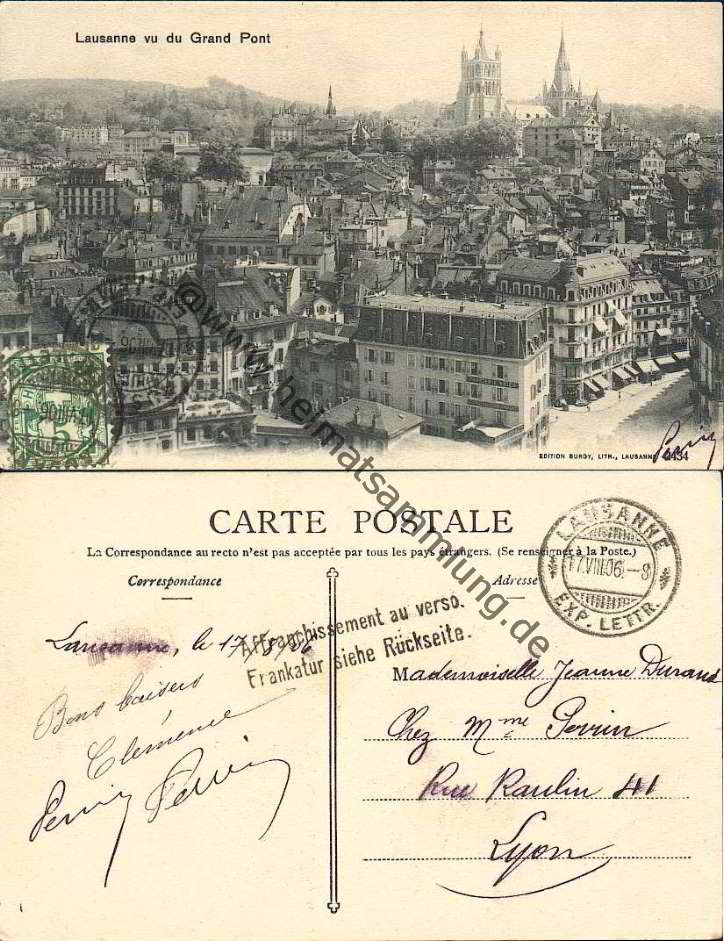 Lausanne vu du Grand Pont
EDITION BURGY, LITH., LAUSANNE 2434
Perrin
@www.heimatsammlung.de
CARTE POSTALE
La Correspondance au recto n'est pas acceptée par tous les pays étrangers. (Se renseigner à la Poste.)
Correspondance
Adresse
LAUSANNE
17.VIII.06.-8
EXP. LETTR.
Affranchissement au verso.
Frankatur siehe Rückseite.
Lausanne, le 17/8/06
Bons baisers
Clémence
Perrin Perrin
Mademoiselle Jeanne Durand
Chez Mme Perrin
Rue Raulin 41
Lyon